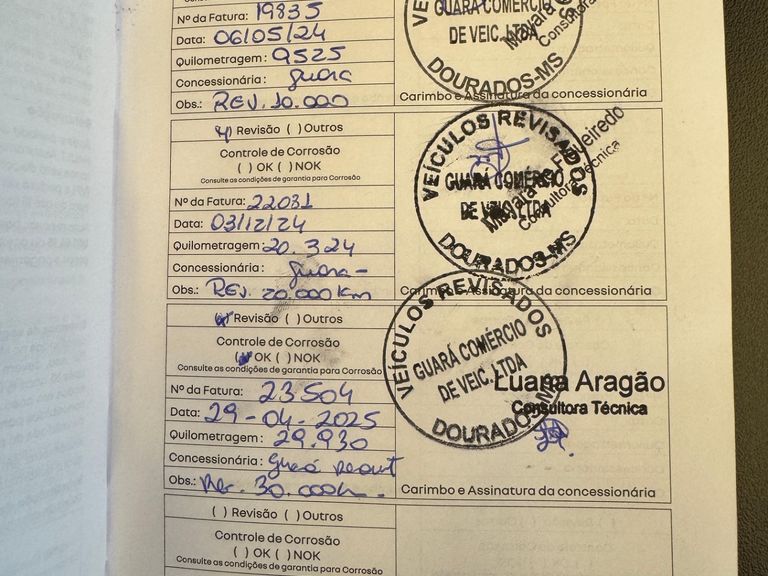 Nº da Fatura: 19835
Data: 06/05/24
Quilometragem: 9525
Concessionária: guara
Obs.: REV. 10.000
VEÍC
GUARÁ COMÉRCIO
DE VEIC. LTDA
DOURADOS-MS
Mayara
Consultora
Carimbo e Assinatura da concessionária
Revisão ( ) Outros
Controle de Corrosão
( ) OK ( ) NOK
Consulte as condições de garantia para Corrosão
Nº da Fatura: 22031
Data: 03/12/24
Quilometragem: 20.324
Concessionária: guara-
Obs.: REV. 20.000 Km
VEÍCULOS REVISADOS
GUARÁ COMÉRCIO
DE VEIC. LTDA
DOURADOS-MS
Mayara Figueiredo
Consultora Técnica
Carimbo e Assinatura da concessionária
Revisão ( ) Outros
Controle de Corrosão
( ) OK ( ) NOK
Consulte as condições de garantia para Corrosão
Nº da Fatura: 23504
Data: 29-04-2025
Quilometragem: 29.930
Concessionária:
Obs.: 30.000
VEÍCULOS REVISADOS
GUARÁ COMÉRCIO
DE VEIC. LTDA
DOURADOS-MS
Luana Aragão
Consultora Técnica
Carimbo e Assinatura da concessionária
( ) Revisão ( ) Outros
Controle de Corrosão
( ) OK ( ) NOK
Consulte as condições de garantia para Corrosão